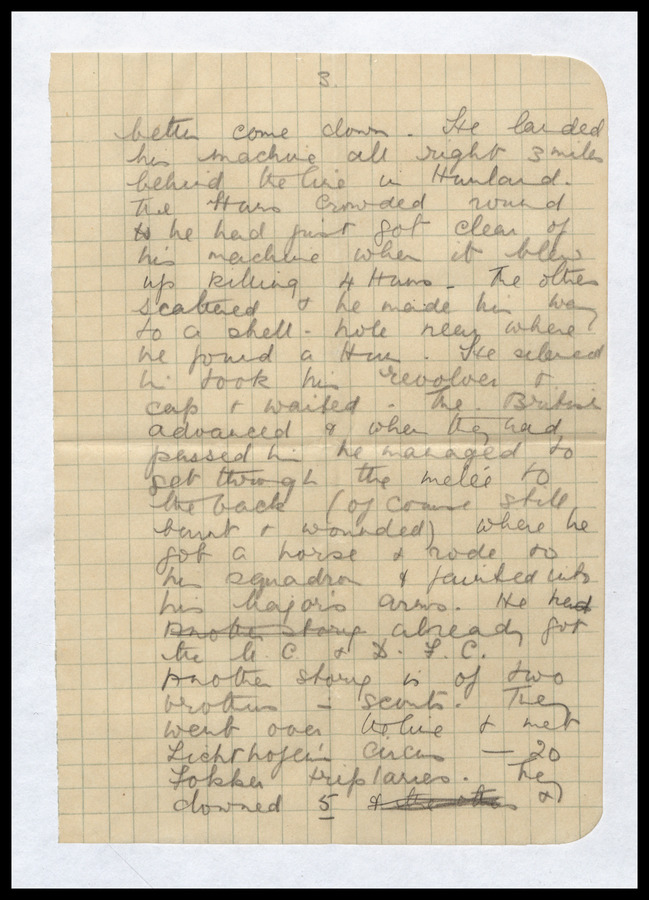 3.
better come down. He landed
his machine all right 3 miles
behind the line in Hunland.
The Huns crowded round
& he had just got clear of
his machine when it blew
up killing 4 Huns. The others
scattered & he made his way
to a shell-hole near where
he found a Hun. He silenced
him took his revolver &
cap & waited. The British
advanced & when they had
passed him he managed to
get through the meleé to
the back (of course still
burnt & wounded) where he
got a horse & rode to
his squadron & fainted into
his Major's arms. He had
Another story already got
the M.C. & D.F.C.
Another story is of two
brothers in scouts. They
went over the line & met
Lichthofen's Circus — 20
Fokker triplanes. They
downed 5 & the others &